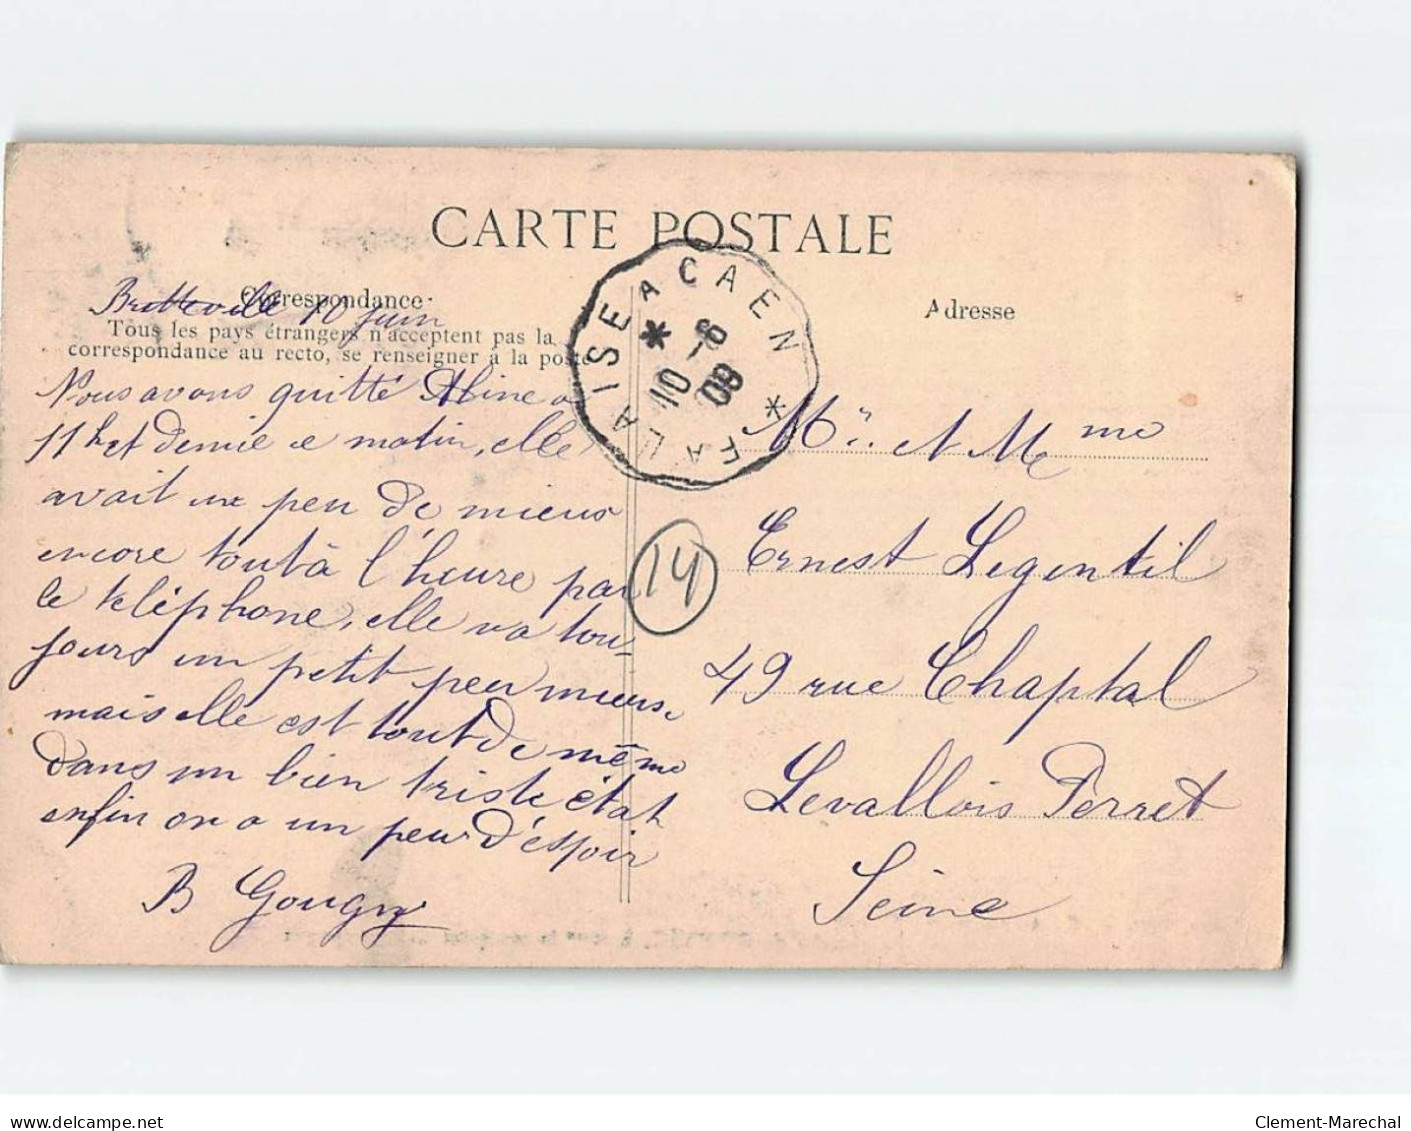 CARTE POSTALE
Correspondance
Adresse
Tous les pays étrangers n'acceptent pas la
correspondance au recto, se renseigner à la poste
FALAISE A CAEN
10-6
08
Bretteville 10 juin
Nous avons quitté Albine a
11h et demie ce matin, elle
avait un peu de mieux
encore tout à l'heure par
le téléphone, elle va tou-
jours un petit peu mieux
mais elle est tout de même
dans un bien triste état
enfin on a un peu d'espoir
B Gougy
14
Mr. et Mme
Ernest Legentil
49 rue Chaptal
Levallois Perret
Seine
delcampe.net
Clement-Marechal